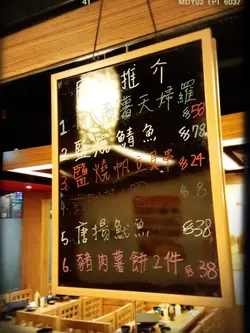 41 MDY02 EPT 6037
推介
1. 薯天婦羅 $58
2. 鹽燒鯖魚 $78
3. 鹽燒帆立貝串 $24
8
5. 唐揚魷魚 $38
6. 豬肉薯餅2件 $38